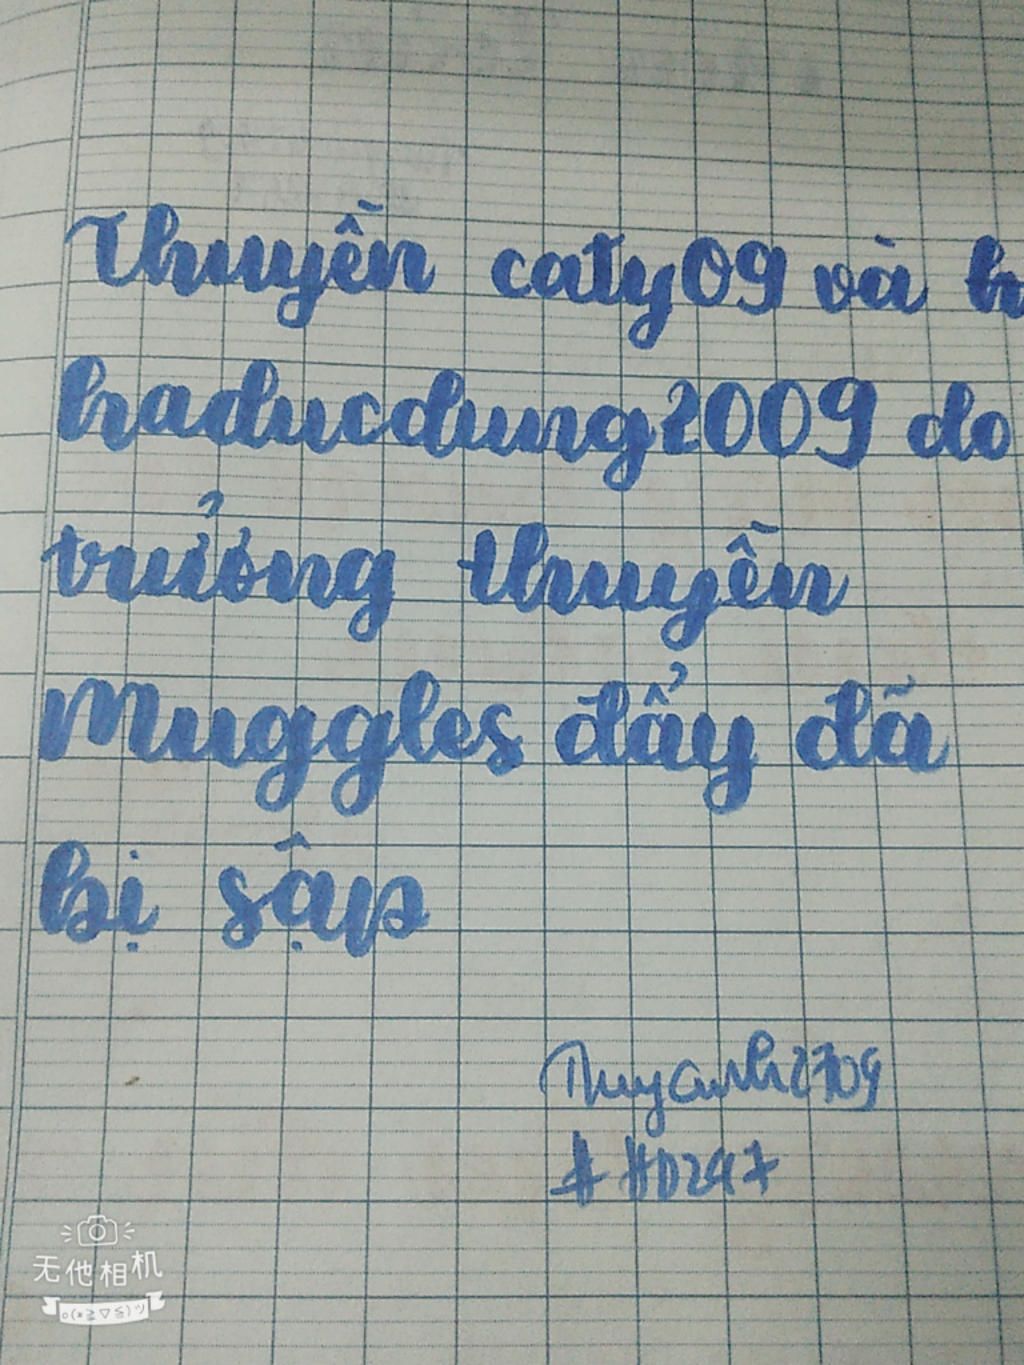 Thuyền caty09 và h
haducdung2009 do
trưởng thuyền
Muggles đẩy đã
bị sập
Thuyanh2709
#HD247
无他相机
o(*≧▽≦)ツ